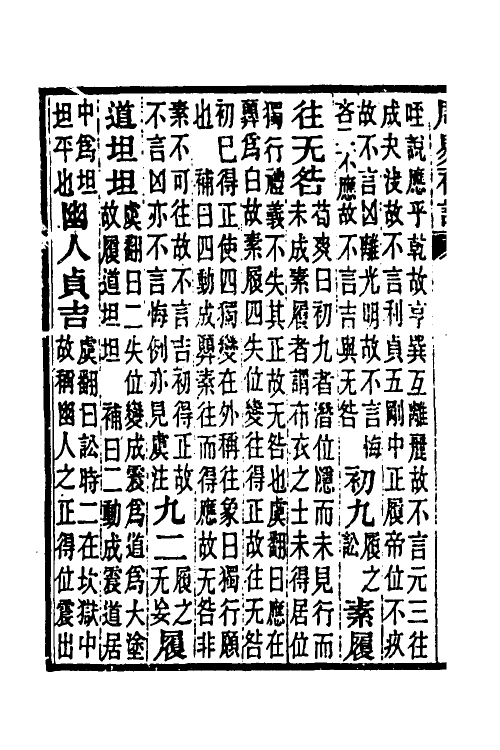 咥說應乎乾故亨巽互離麗故不言元三往
成夬決故不言利貞五剛中正履帝位不疚
故不言凶離光明故不言悔
吝二不應故不言吉與无咎
初九
履之
訟
素履
往无咎
荀爽曰初九者潛位隱而未見行而
未成素履者謂布衣之士未得居位
獨行禮義不失其正故无咎也虞翻曰應在
巽為白故素履四失位變往得正故往无咎
初巳得正使四獨變在外稱往象曰獨行願
也 補曰四動成巽素往而得應故无咎非
素不可往故不言吉初得正故
不言凶亦不言悔例亦見虞注
九二
履之
无妄
履
道坦坦
虞翻曰二失位變成震為道為大塗
故履道坦坦 補曰二動成震道居
中為坦
坦平也
幽人貞吉
虞翻曰訟時二在坎獄中
故稱幽人之正得位震出